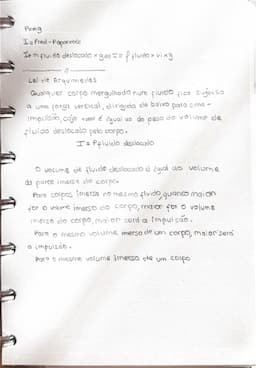 P=mg
I = Preal - Paparente
I = m fluido deslocado × g = I = ρ fluido × v i × g
Lei de Arquimedes
Qualquer corpo mergulhado num fluido fica sujeito
a uma força vertical, dirigida de baixo para cima -
impulsão, cujo valor é igual ao do peso do volume de
fluido deslocado pelo corpo.
I = P fluido deslocado
O volume de fluido deslocado é igual ao volume
da parte imersa do corpo.
Para corpos imersa no mesmo fluido, quando maior
for o volume imerso do corpo, maior for o volume
imerso do corpo, maior será a impulsão.
Para o mesmo volume imerso de um corpo, maior será
a impulsão.
Para o mesmo volume imersa de um corpo